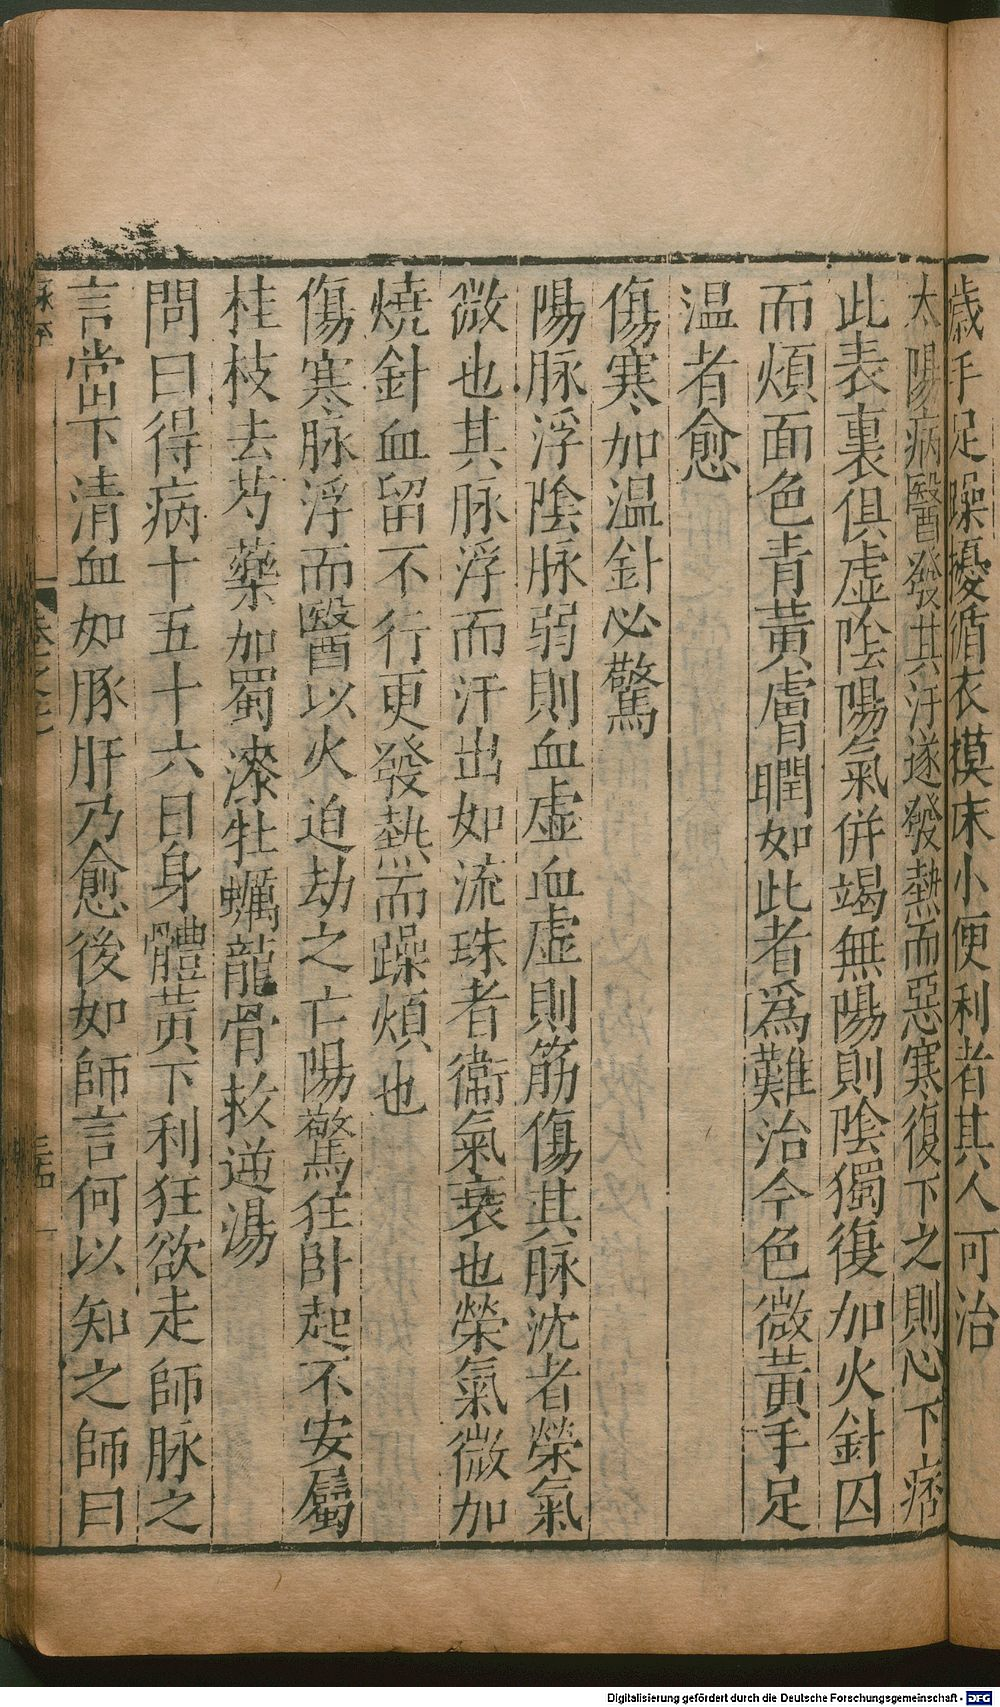 歲手足躁擾循衣摸床小便利者其人可治
太陽病醫發其汗遂發熱而惡寒復下之則心下痞
此表裏俱虛陰陽氣併竭無陽則陰獨復加火針因
而煩面色青黃膚瞤如此者爲難治今色微黃手足
温者愈
傷寒加温針必驚
陽脉浮陰脉弱則血虛血虛則筋傷其脉沈者榮氣
微也其脉浮而汗出如流珠者衞氣衰也榮氣微加
燒針血留不行更發熱而躁煩也
傷寒脉浮而醫以火迫劫之亡陽驚狂卧起不安屬
桂枝去芍藥加蜀漆牡蠣龍骨救逆湯
問曰得病十五十六日身體黃下利狂欲走師脉之
言當下清血如豚肝乃愈後如師言何以知之師曰
脉
卷之七
Digitalisierung gefördert durch die Deutsche Forschungsgemeinschaft - DFG